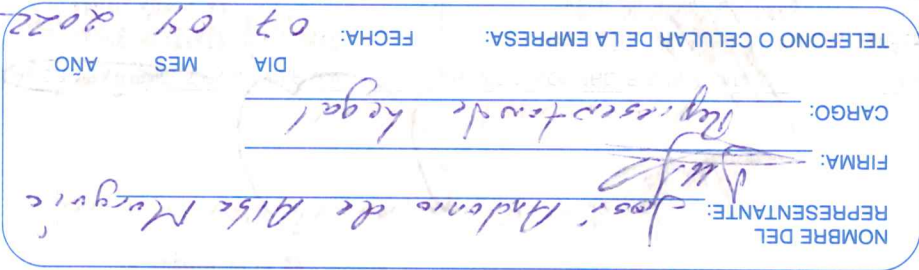 NOMBRE DEL
REPRESENTANTE: José Antonio de Alba
FIRMA:
CARGO: Representante Legal
DIA MES AÑO
TELEFONO O CELULAR DE LA EMPRESA: FECHA: 07 04 2022